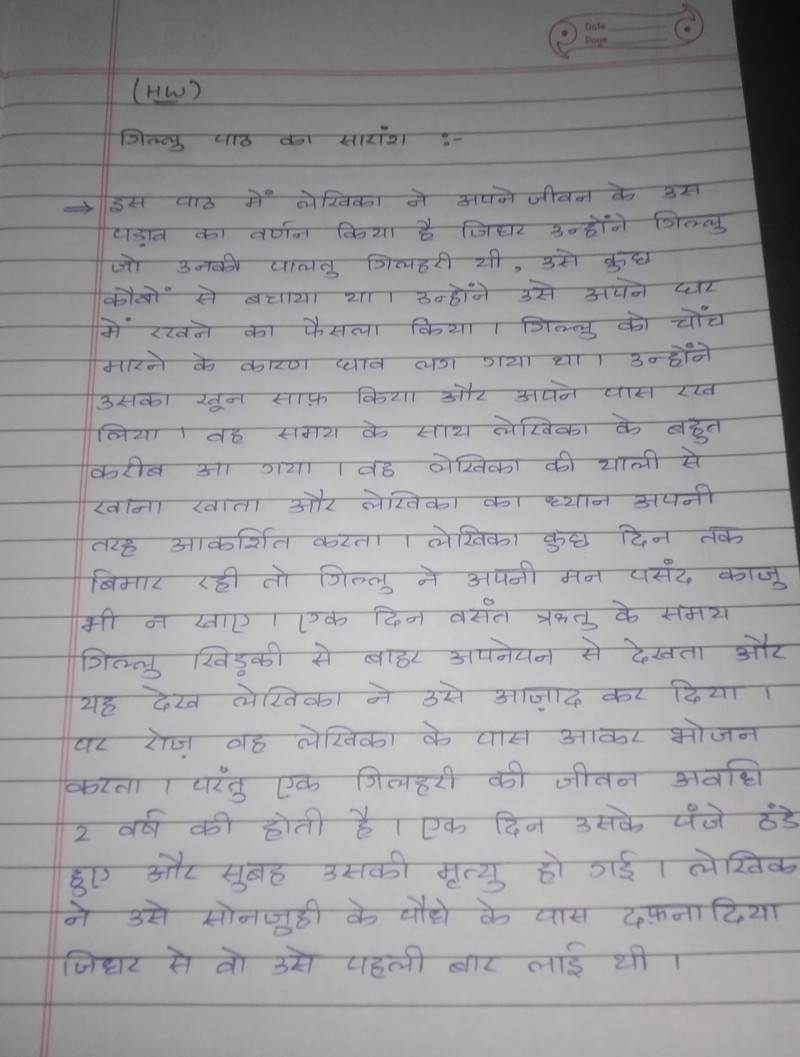 Date
Page
(HW)
गिल्लु पाठ का सारांश :-
→ इस पाठ में लेखिका ने अपने जीवन के उस
पड़ाव का वर्णन किया है जिधर उन्होंने गिल्लु
जो उनकी पालतु गिलहरी थी, उसे कुछ
कौवों से बचाया था। उन्होंने उसे अपने घर
में रखने का फैसला किया। गिल्लु को चोंच
मारने के कारण घाव लग गया था। उन्होंने
उसका खून साफ़ किया और अपने पास रख
लिया। वह समय के साथ लेखिका के बहुत
करीब आ गया। वह लेखिका की थाली से
खाना खाता और लेखिका का ध्यान अपनी
तरह आकर्शित करता। लेखिका कुछ दिन तक
बिमार रही तो गिल्लु ने अपनी मन पसंद काजु
भी न खाए। एक दिन वसंत ऋतु के समय
गिल्लु खिड़की से बाहर अपनेपन से देखता और
यह देख लेखिका ने उसे आज़ाद कर दिया।
पर रोज़ वह लेखिका के पास आकर भोजन
करता। परंतु एक गिलहरी की जीवन अवधि
2 वर्ष की होती है। एक दिन उसके पंजे ठंडे
हुए और सुबह उसकी मृत्यु हो गई। लेखिक
ने उसे सोनजुही के पौधे के पास दफ़ना दिया
जिधर से वो उसे पहली बार लाई थी।